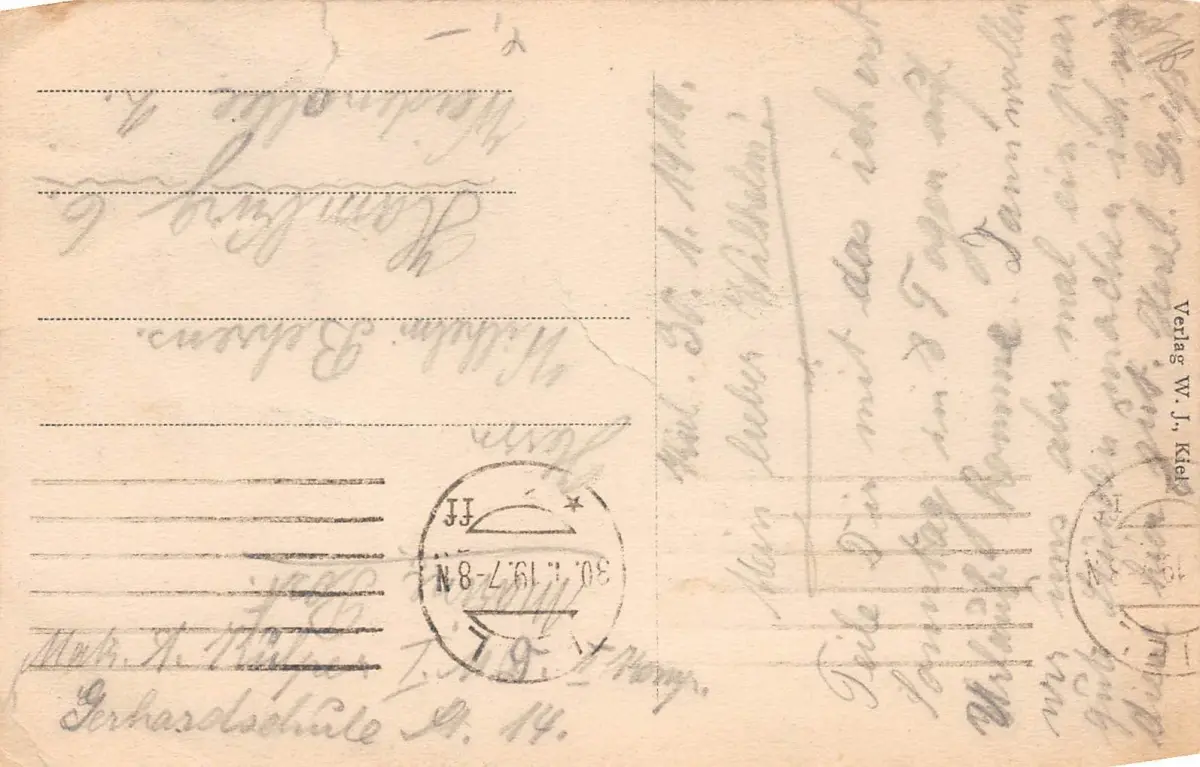 Kiel. 30. 1. 1919.
Mein lieber Wilhelm!
Teile Dir mit das ich erst
Sonntag in 8 Tagen auf
Urlaub komme. Dann wollen
wir uns aber mal ein paar
gute machen ich
die
Verlag W. J., Kiel
Marine
Post.
30.1.19.7-8N
ff
Herrn
Wilhelm Behrens.
Hamburg 6.
Weidenallee
Mak. A. Komp.
Gerhardschule St. 14.